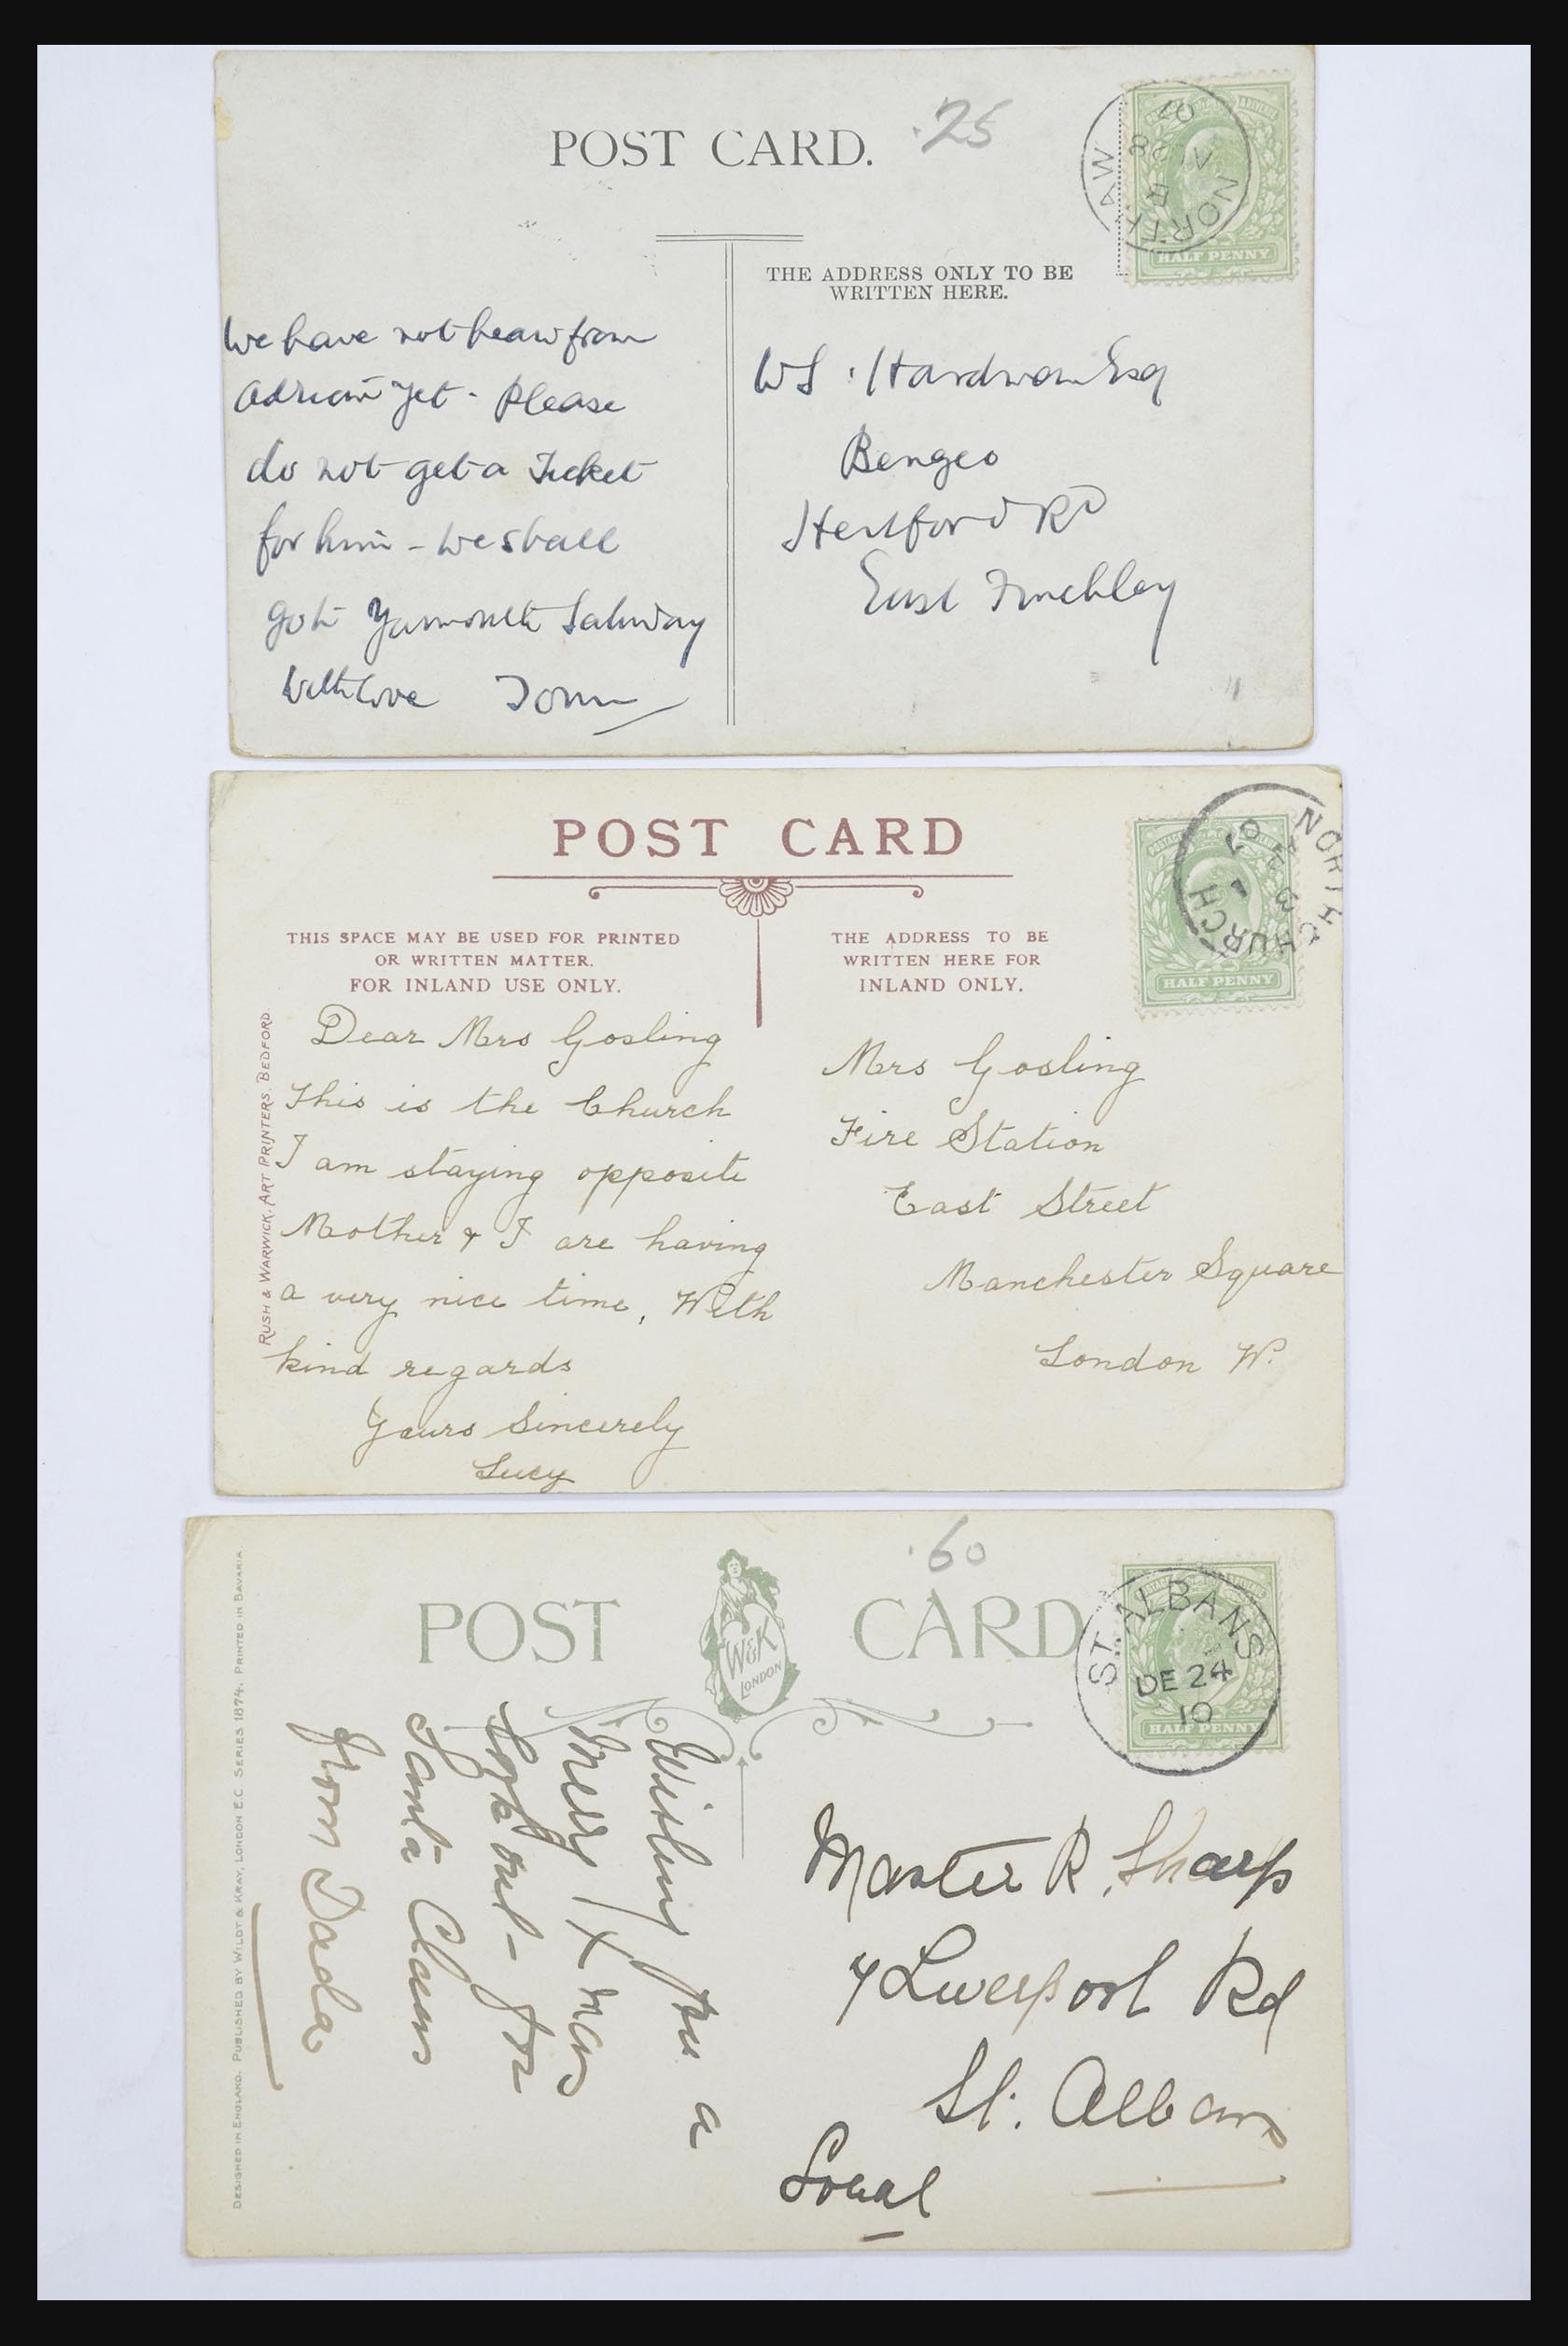 POST CARD.
.25
NORTHAW
B
28
07
HALF PENNY
THE ADDRESS ONLY TO BE
WRITTEN HERE.
We have not hear from
Adrian yet - Please
do not get a Ticket
for him - we shall
go to Yarmouth Saturday
With love Tom
WS Hardman Esq
Bengeo
Hertford Rd
East Finchley
POST CARD
THIS SPACE MAY BE USED FOR PRINTED
OR WRITTEN MATTER.
FOR INLAND USE ONLY.
THE ADDRESS TO BE
WRITTEN HERE FOR
INLAND ONLY.
NORTHCHURCH
07
HALF PENNY
RUSH & WARWICK, ART PRINTERS, BEDFORD.
Dear Mrs Gosling
This is the Church
I am staying opposite
Mother & I are having
a very nice time, With
kind regards
Yours Sincerely
Lucy
Mrs Gosling
Fire Station
East Street
Manchester Square
London W.
.60
POST CARD
W&K
LONDON
ST. ALBANS
DE 24
10
HALF PENNY
DESIGNED IN ENGLAND. PUBLISHED BY WILDT & KRAY, LONDON E.C. SERIES 1874. PRINTED IN BAVARIA.
Wishing you a
Merry Xmas
Look out - for
Santa Claus
from Dada
Master R. Sharp
7 Liverpool Rd
St. Albans
Local